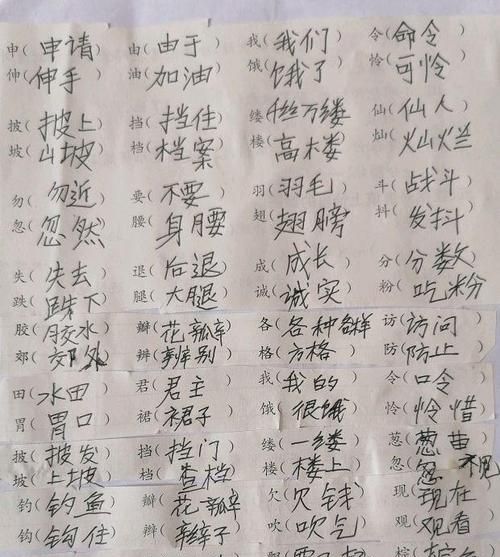 申（申请） 由（由于） 我（我们） 令（命令）
伸（伸手） 油（加油） 饿（饿了） 怜（可怜）
披（披上） 挡（挡住） 缕（千丝万缕） 仙（仙人）
坡（山坡） 档（档案） 楼（高楼） 灿（灿烂）
勿（勿近） 要（不要） 羽（羽毛） 斗（战斗）
忽（忽然） 腰（身腰） 翅（翅膀） 抖（发抖）
失（失去） 退（后退） 成（成长） 分（分数）
跌（跌下） 腿（大腿） 诚（诚实） 粉（吃粉）
胶（胶水） 瓣（花瓣） 各（各种各样） 访（访问）
郊（郊外） 辨（辨别） 格（方格） 防（防止）
田（水田） 君（君主） 我（我的） 令（口令）
胃（胃口） 裙（裙子） 饿（很饿） 怜（怜惜）
披（披发） 挡（挡门） 缕（一缕） 葱（葱
坡（上坡） 档（查档） 楼（楼上） 忽（忽视）
钓（钓鱼） 瓣（花瓣） 欠（欠钱） 现（现在）
钩（钩住） 辫（辫子） 吹（吹气） 观（观看）